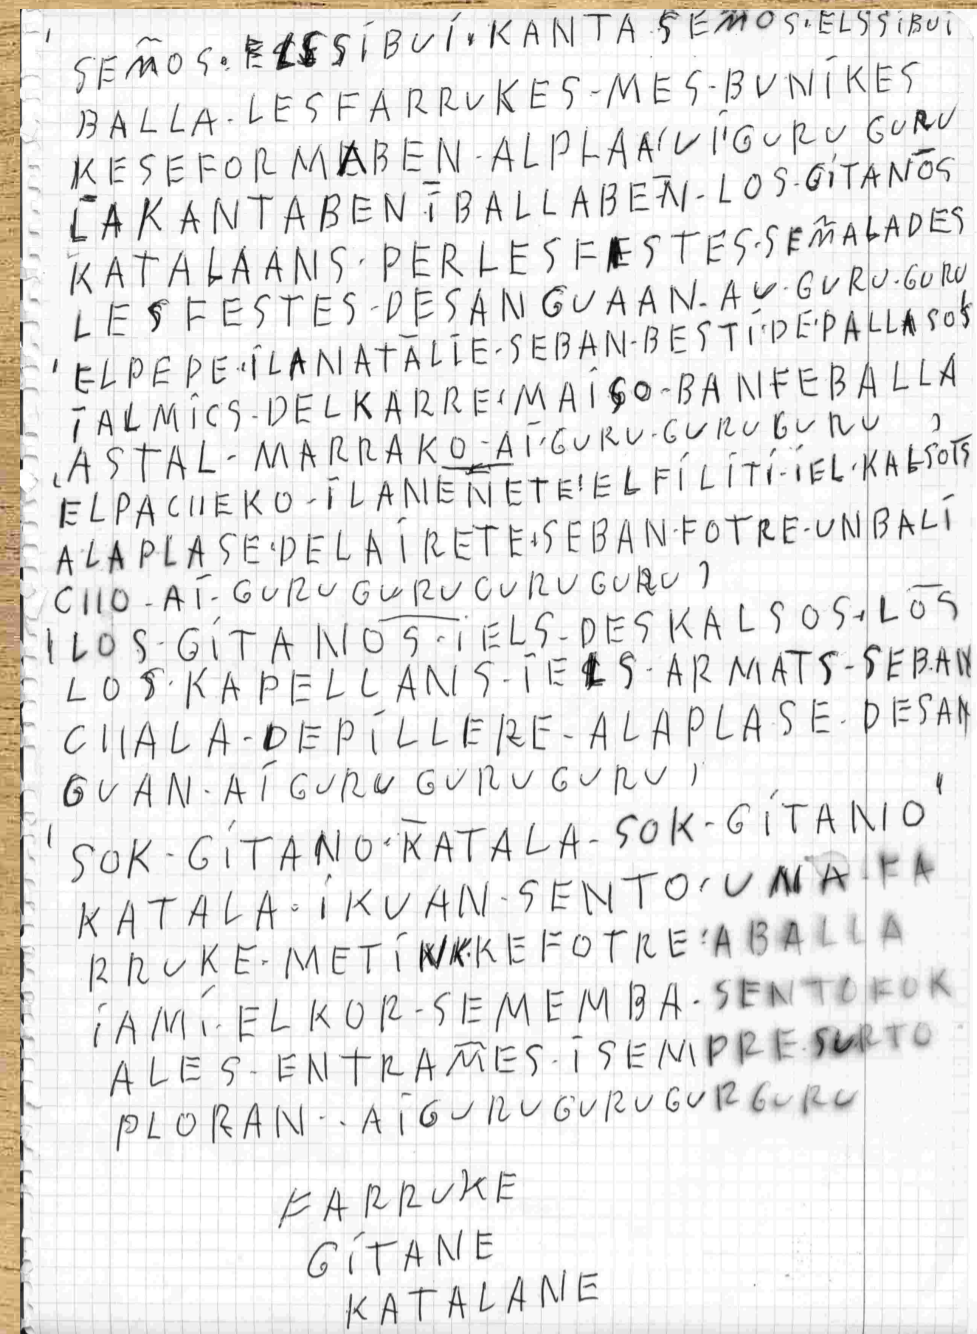 ' SEM̃OS · ELSSÍBUÍ · KANTA SEMOS · ELSSIBUI
BALLA - LES FARRUKES - MES - BUNÍKES
KESEFORMABEN - ALPLAA'U I'GURU GURU
LAKANTABEN Ī BALLABEN̄ - LOS - GÍTANŌS
KATALAANS · PER LES FESTES · SEM̃ALADES
LES FESTES - DESAN GUAAN - AU - GURU - GURU
' EL PEPE · ÍLANATĀLIE - SEBAN - BESTÍ · DE · PALLASOS
ĪALMÍCS - DELKARRE · MAÍGO - BANFEBALLA
ASTAL - MARRAKO - AĪ · GURU - GURU GURU )
ELPACIIEKO - ĪLANEN̄ETE ' ELFÍLÍTÍ - ÍEL · KALSOTS
ALAPLASE · DELAÍRETE · SEBAN · FOTRE - UNBALÍ
CIIO - AĪ - GURU GURU GURU GURU )
' LOS - GÍTANOS - ÍELS - DESKALSOS · LŌS
LOS · KAPELLANS - ĪELS - ARMATS - SEBAN
CIIALA - DEPÍLLERE - ALAPLASE - DESAN
GUAN - AĪ GURU GURU GURU )
' SOK - GÍTANO · K̄ATALA - SOK - GÍTANIO "
KATALA · ÍKUAN - SENTO · UNA - FA
RRUKE - METÍNK · KEFOTRE ' ABALLA
ÍAMÍ · ELKOR - SEMEMBA - SENTOFOK
ALES - ENTRAM̃ES - ĪSEMPRE SURTO
PLORAN · · AĪGURUGURUGURGURU
FARRUKE
GÍTANE
KATALANE